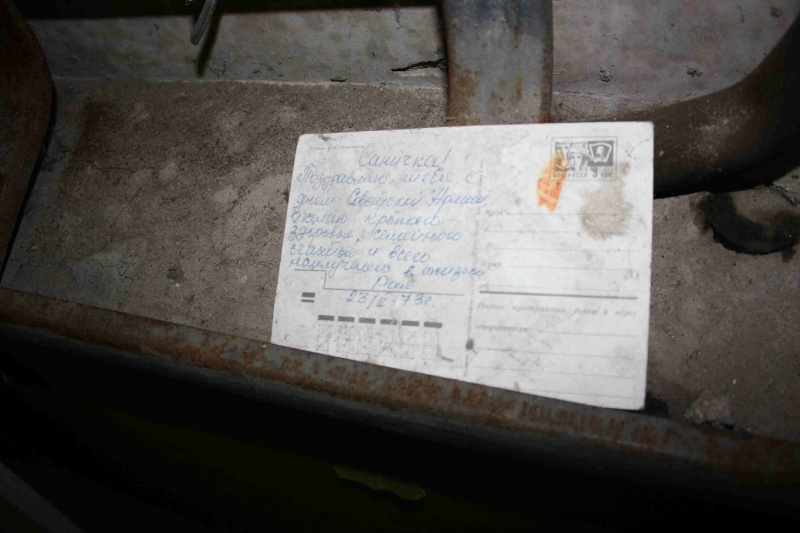 Саничка!
Поздравляю тебя с
днем Советской Армии
желаю крепкого
здоровья, семейного
счастья и всего
наилучшего в жизни
Рая
23/II-73г.
Куда
Кому
Индекс предприятия связи и адрес
отправителя